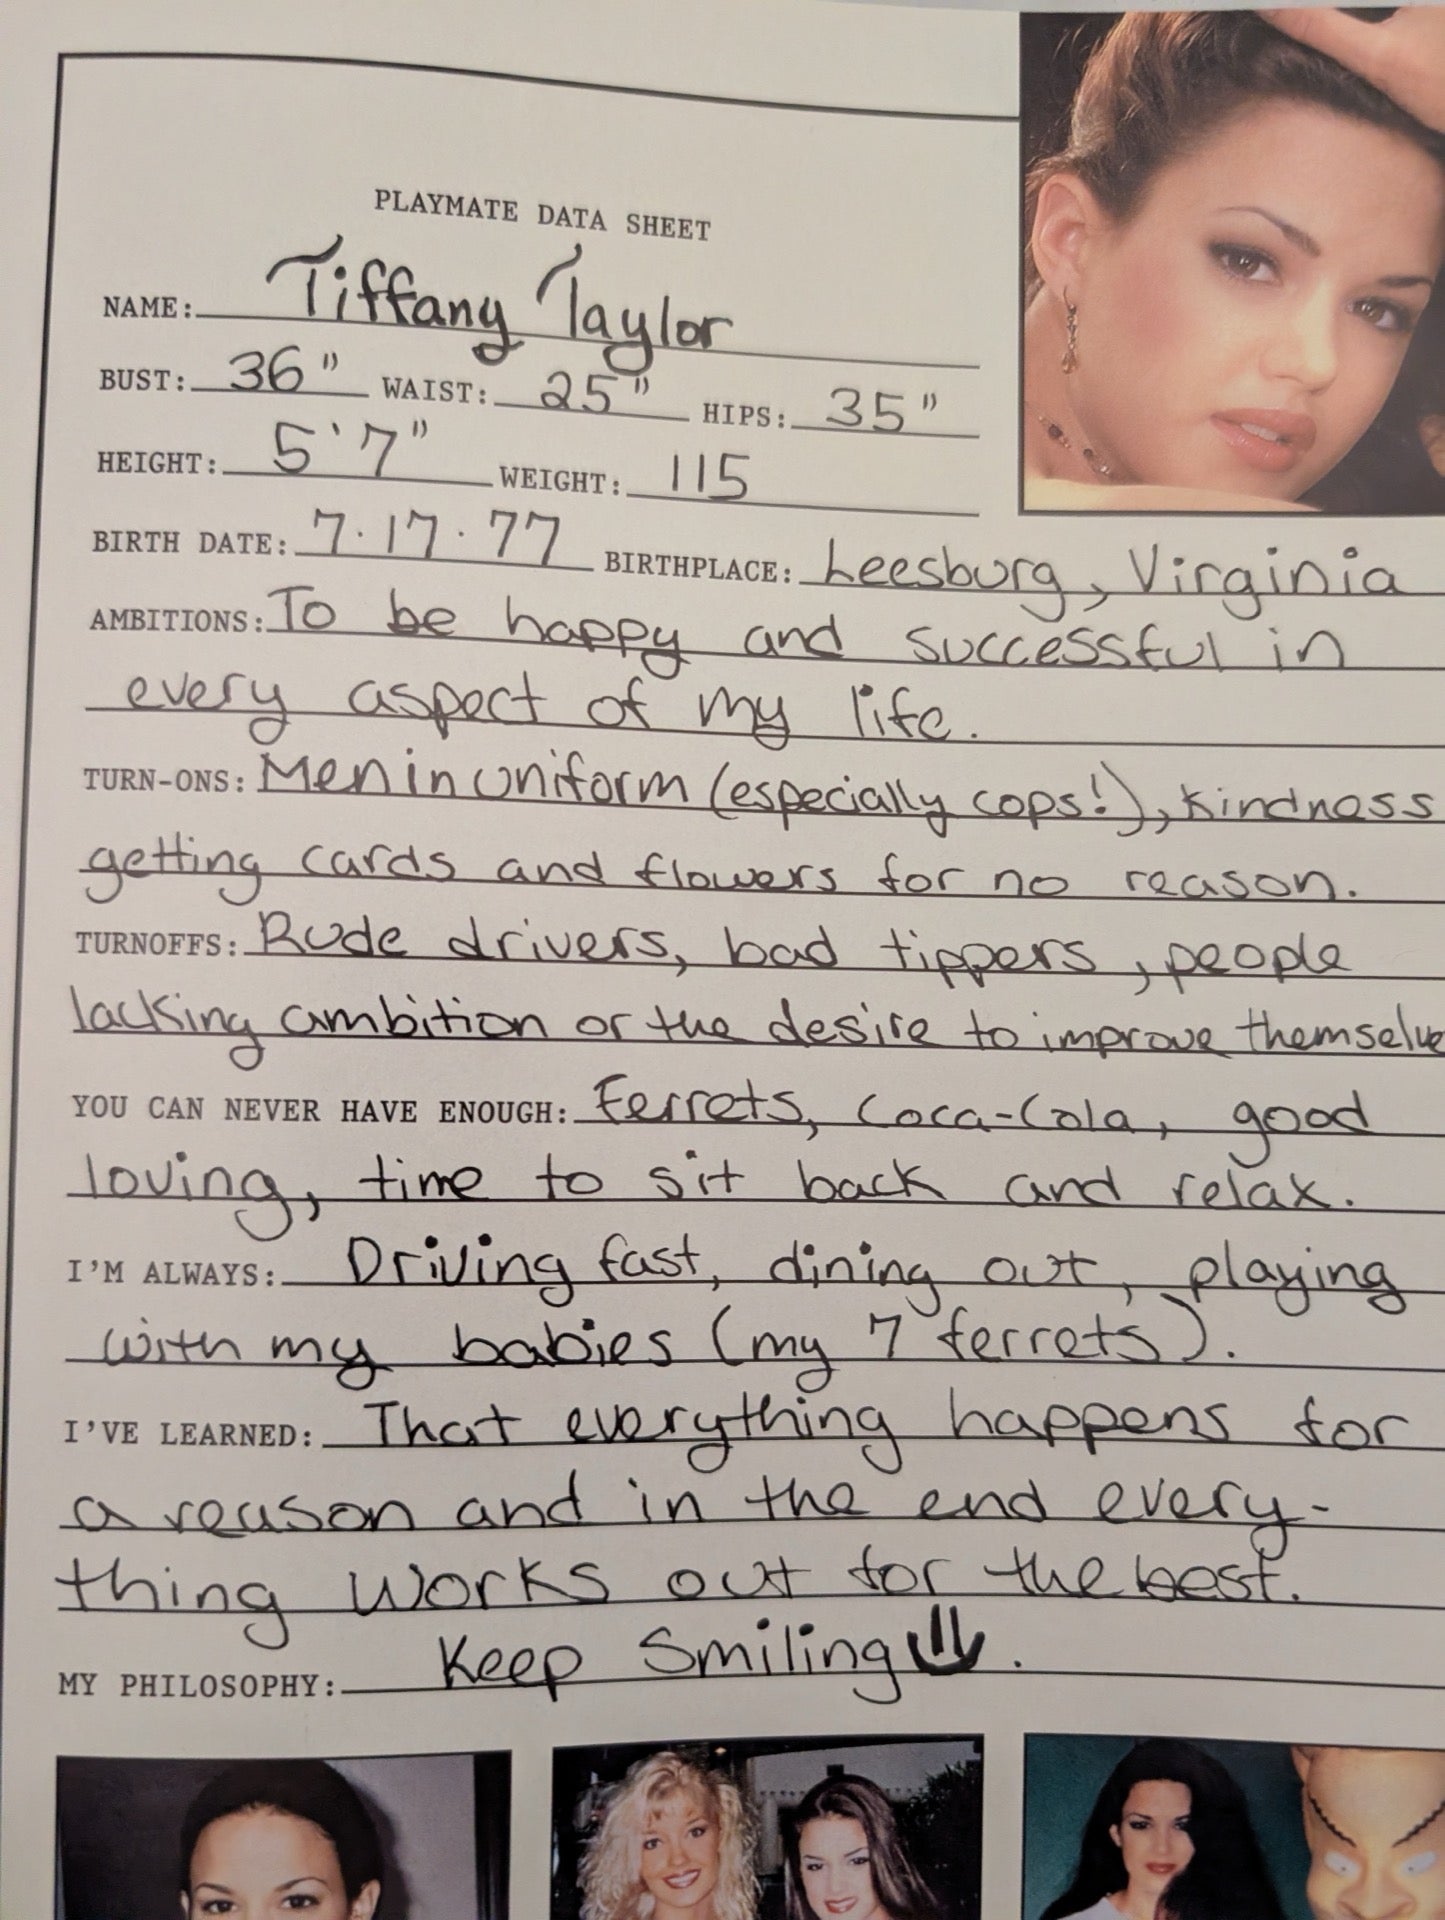 PLAYMATE DATA SHEET
NAME: Tiffany Taylor
BUST: 36" WAIST: 25" HIPS: 35"
HEIGHT: 5'7" WEIGHT: 115
BIRTH DATE: 7·17·77 BIRTHPLACE: Leesburg, Virginia
AMBITIONS: To be happy and successful in
every aspect of my life.
TURN-ONS: Men in uniform (especially cops!), kindness
getting cards and flowers for no reason.
TURNOFFS: Rude drivers, bad tippers, people
lacking ambition or the desire to improve themselve
YOU CAN NEVER HAVE ENOUGH: Ferrets, Coca-Cola, good
loving, time to sit back and relax.
I'M ALWAYS: Driving fast, dining out, playing
with my babies (my 7 ferrets).
I'VE LEARNED: That everything happens for
a reason and in the end every-
thing works out for the best.
MY PHILOSOPHY: Keep Smiling.